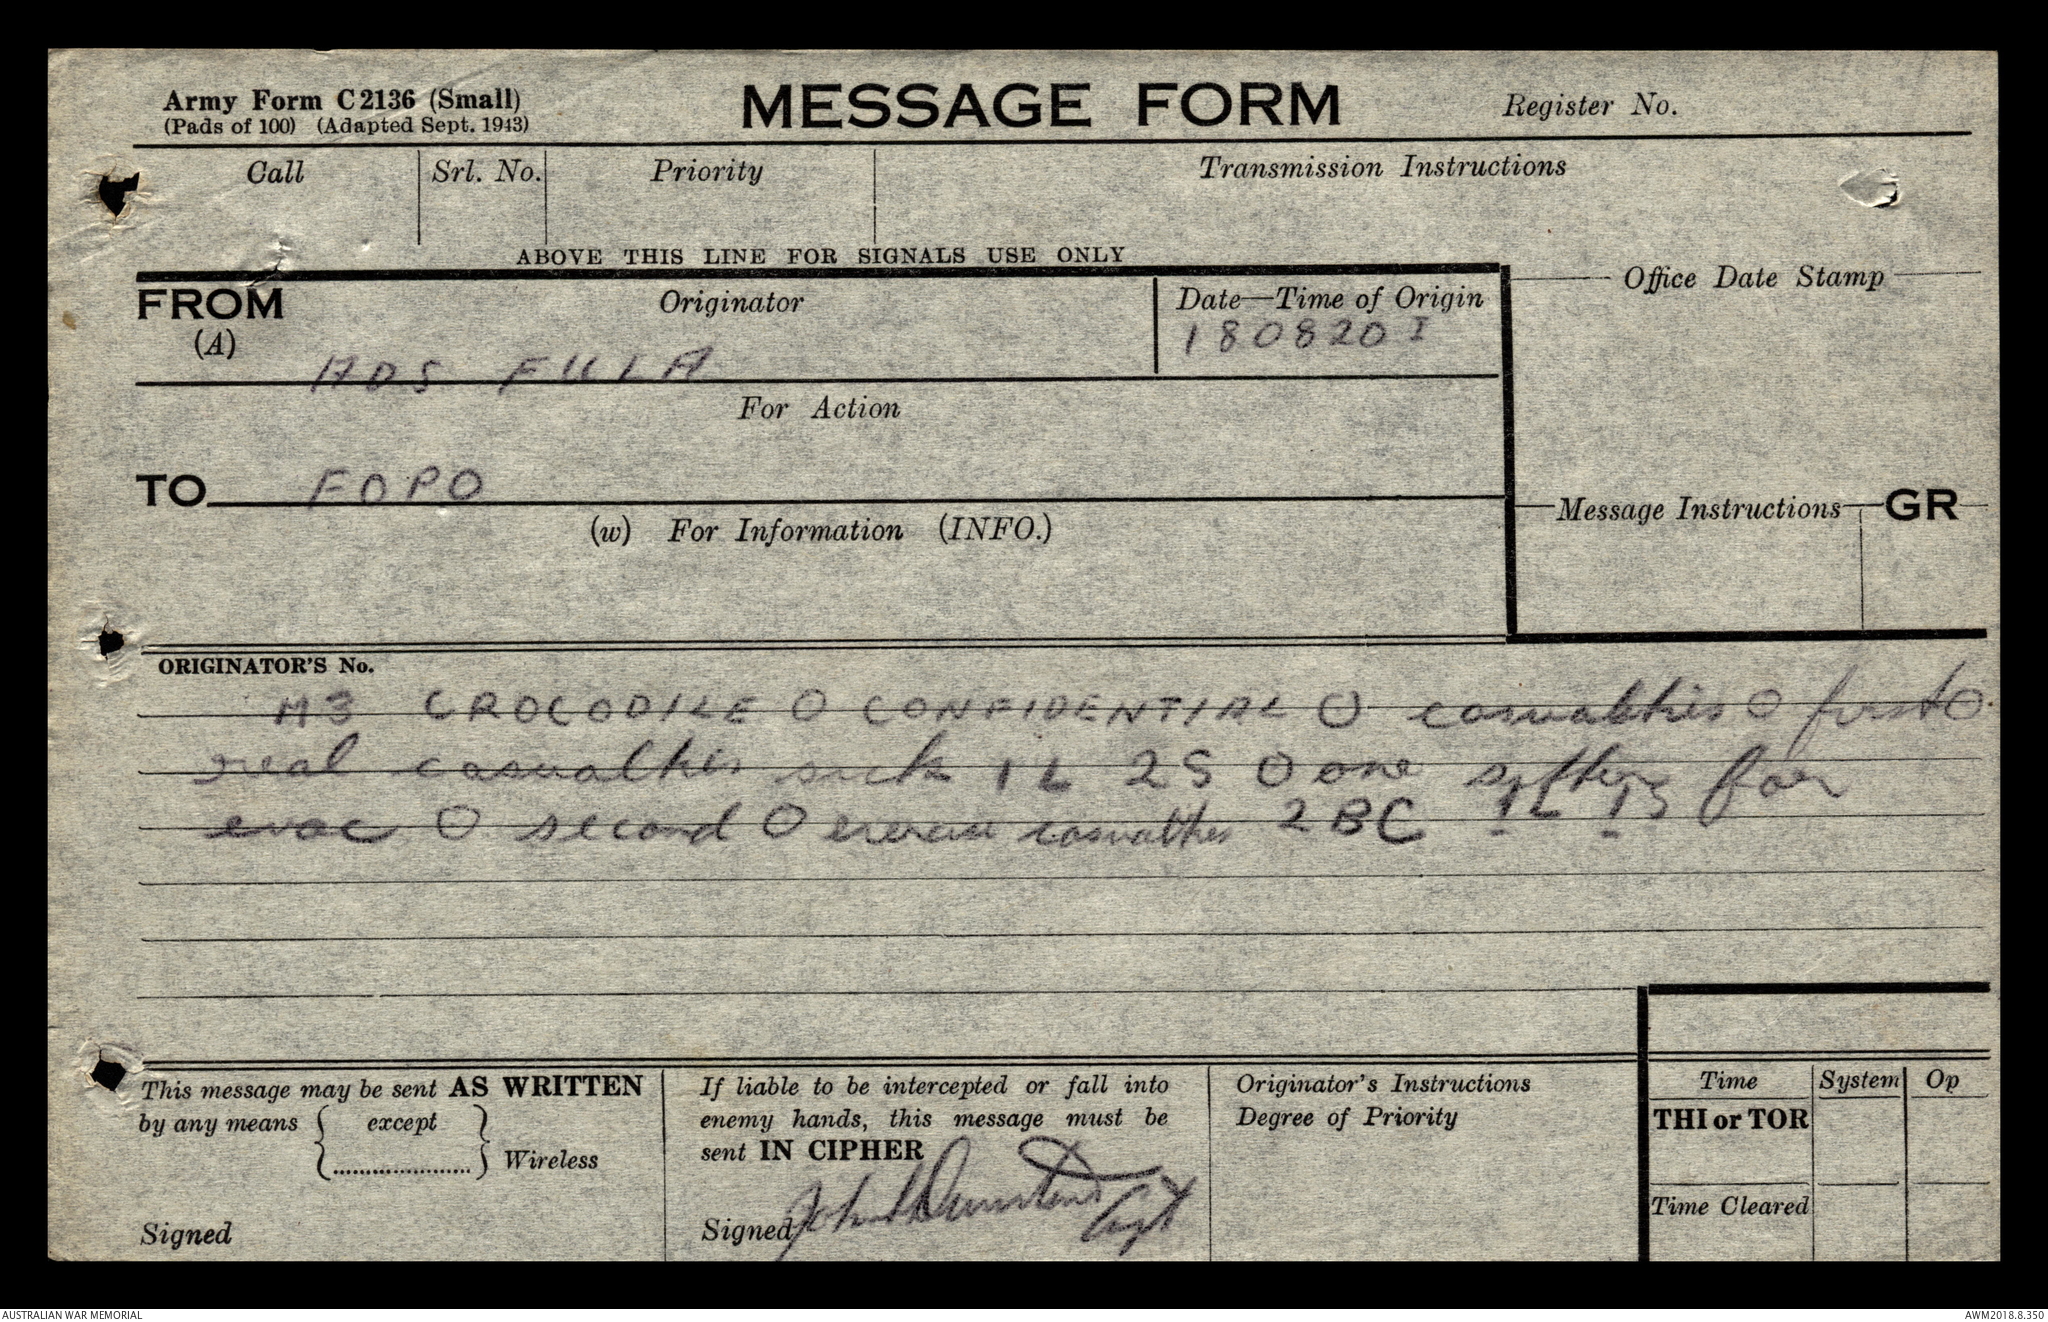 Army Form C2136 (Small)
(Pads of 100) (Adapted Sept. 1943)
MESSAGE FORM
Register No.
Call
Srl. No.
Priority
Transmission Instructions
ABOVE THIS LINE FOR SIGNALS USE ONLY
FROM
(A)
Originator
ADS FULA
Date—Time of Origin
180820 I
Office Date Stamp
For Action
TO
FDPO
(w) For Information (INFO.)
Message Instructions
GR
ORIGINATOR'S No.
M3 CROCODILE O CONFIDENTIAL O casualties O first O
real casualties sick 1L 2S O one sitting for
evac O second O exercise casualties 2BC 1L 1S
This message may be sent AS WRITTEN
by any means { except
.....................} Wireless
Signed
If liable to be intercepted or fall into
enemy hands, this message must be
sent IN CIPHER
Signed John Capt
Originator's Instructions
Degree of Priority
Time
System
Op
THI or TOR
Time Cleared
AUSTRALIAN WAR MEMORIAL
AWM2018.8.350